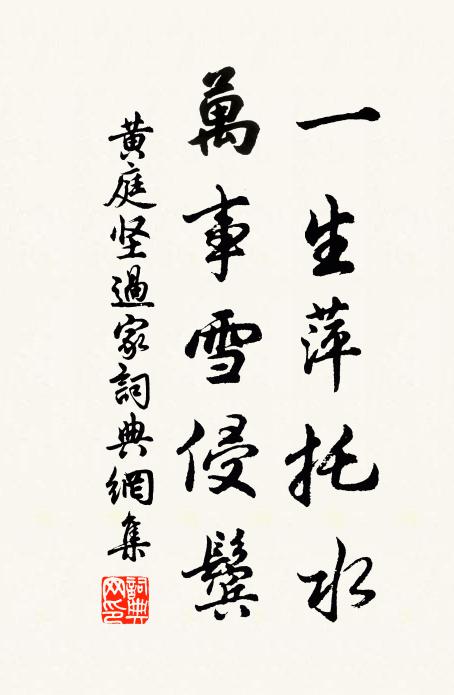 一生萍托水
萬事雪侵鬢
黃庭坚過家詞典網集
詞典网印